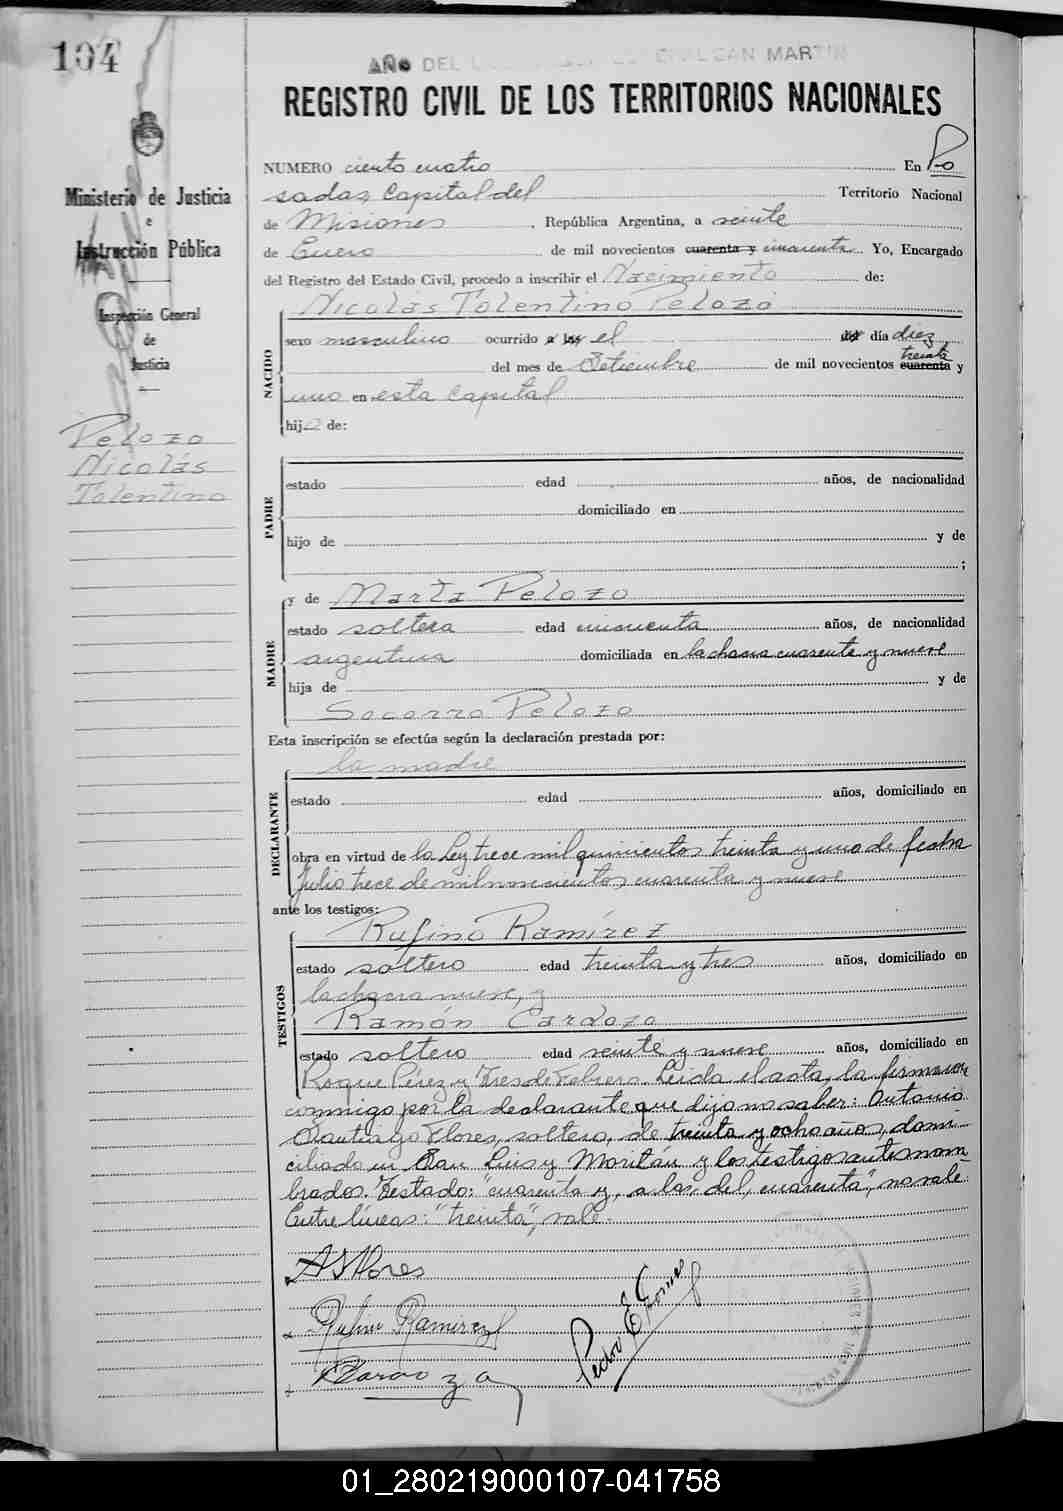 104
AÑO DEL SAN MARTIN
REGISTRO CIVIL DE LOS TERRITORIOS NACIONALES
NUMERO ciento cuatro En Po
sadas, Capital del Territorio Nacional
de Misiones, República Argentina, a veinte
de Enero de mil novecientos cuarenta y cincuenta. Yo, Encargado
del Registro del Estado Civil, procedo a inscribir el Nacimiento de:
Nicolás Tolentino Pelozo
NACIDO
sexo masculino ocurrido a las el del día diez
del mes de Setiembre de mil novecientos cuarenta y
treinta
uno en esta capital
hijo de:
PADRE
estado edad años, de nacionalidad
domiciliado en
hijo de y de
;
y de Marta Pelozo
MADRE
estado soltera edad cincuenta años, de nacionalidad
argentina domiciliada en la chacra cuarenta y nueve
hija de y de
Socorro Pelozo
Esta inscripción se efectúa según la declaración prestada por:
la madre
DECLARANTE
estado edad años, domiciliado en
obra en virtud de la Ley trece mil quinientos treinta y uno de fecha
Julio trece de mil novecientos cuarenta y nueve
ante los testigos:
Rufino Ramírez
TESTIGOS
estado soltero edad treinta y tres años, domiciliado en
la chacra nueve, y
Ramón Cardozo
estado soltero edad veinte y nueve años, domiciliado en
Roque Pérez y Tres de Febrero. Leida el acta, la firmaron
conmigo por la declarante que dijo no saber: Antonio
Santiago Flores, soltero, de treinta y ocho años, domi-
ciliado en San Luis y Moritán y los testigos antes nom-
brados. Testado: "cuarenta y, a las, del, cuarenta", no vale.
Entre líneas: "treinta", vale.
A S Flores
Rufino Ramirez
RCardozo
Pedro E Gomez
Ministerio de Justicia
e
Instrucción Pública
Inspección General
de
Justicia
Pelozo
Nicolás
Tolentino
01_280219000107-041758